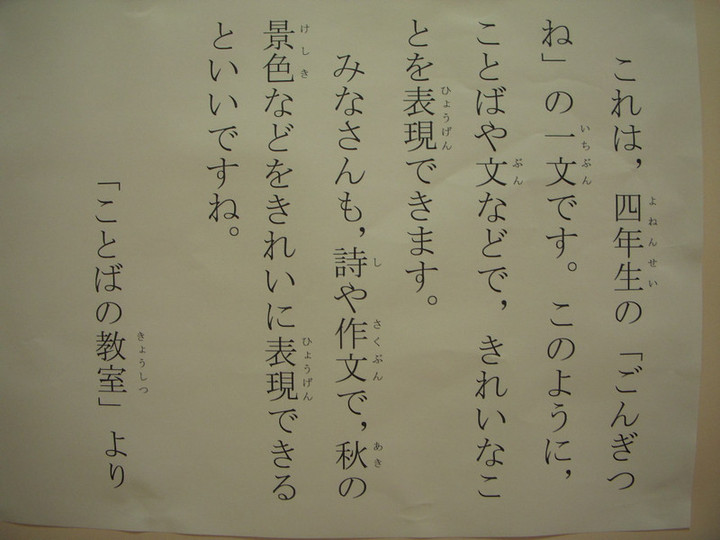 これは，四年生の「ごんぎつ
ね」の一文です。このように，
ことばや文などで，きれいなこ
とを表現できます。
みなさんも，詩や作文で，秋の
景色などをきれいに表現できる
といいですね。
「ことばの教室」より